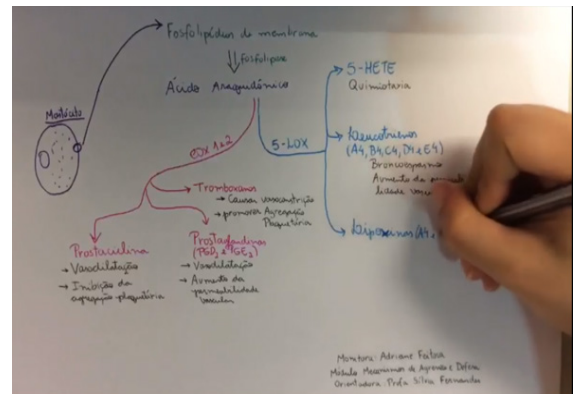 Fosfolipídeos de membrana
fosfolipase
Ácido Araquidônico
Mastócito
COX 1 e 2
5-LOX
5-HETE
Quimiotaxia
Leucotrienos
(A4, B4, C4, D4 e E4)
Broncoespasmo
Aumento da
lidade
Lipoxinas (A4
Tromboxanos
→ Causa vasoconstrição
→ promove Agregação
Plaquetária
Prostaciclina
→ Vasodilatação
→ Inibição da
agregação plaquetária
Prostaglandinas
→ Vasodilatação
→ Aumento da
permeabilidade
vascular
Monitora: Adriane Feitosa
Módulo Mecanismos de Agressão e Defesa
Orientadora Profa Silvia Fernandes